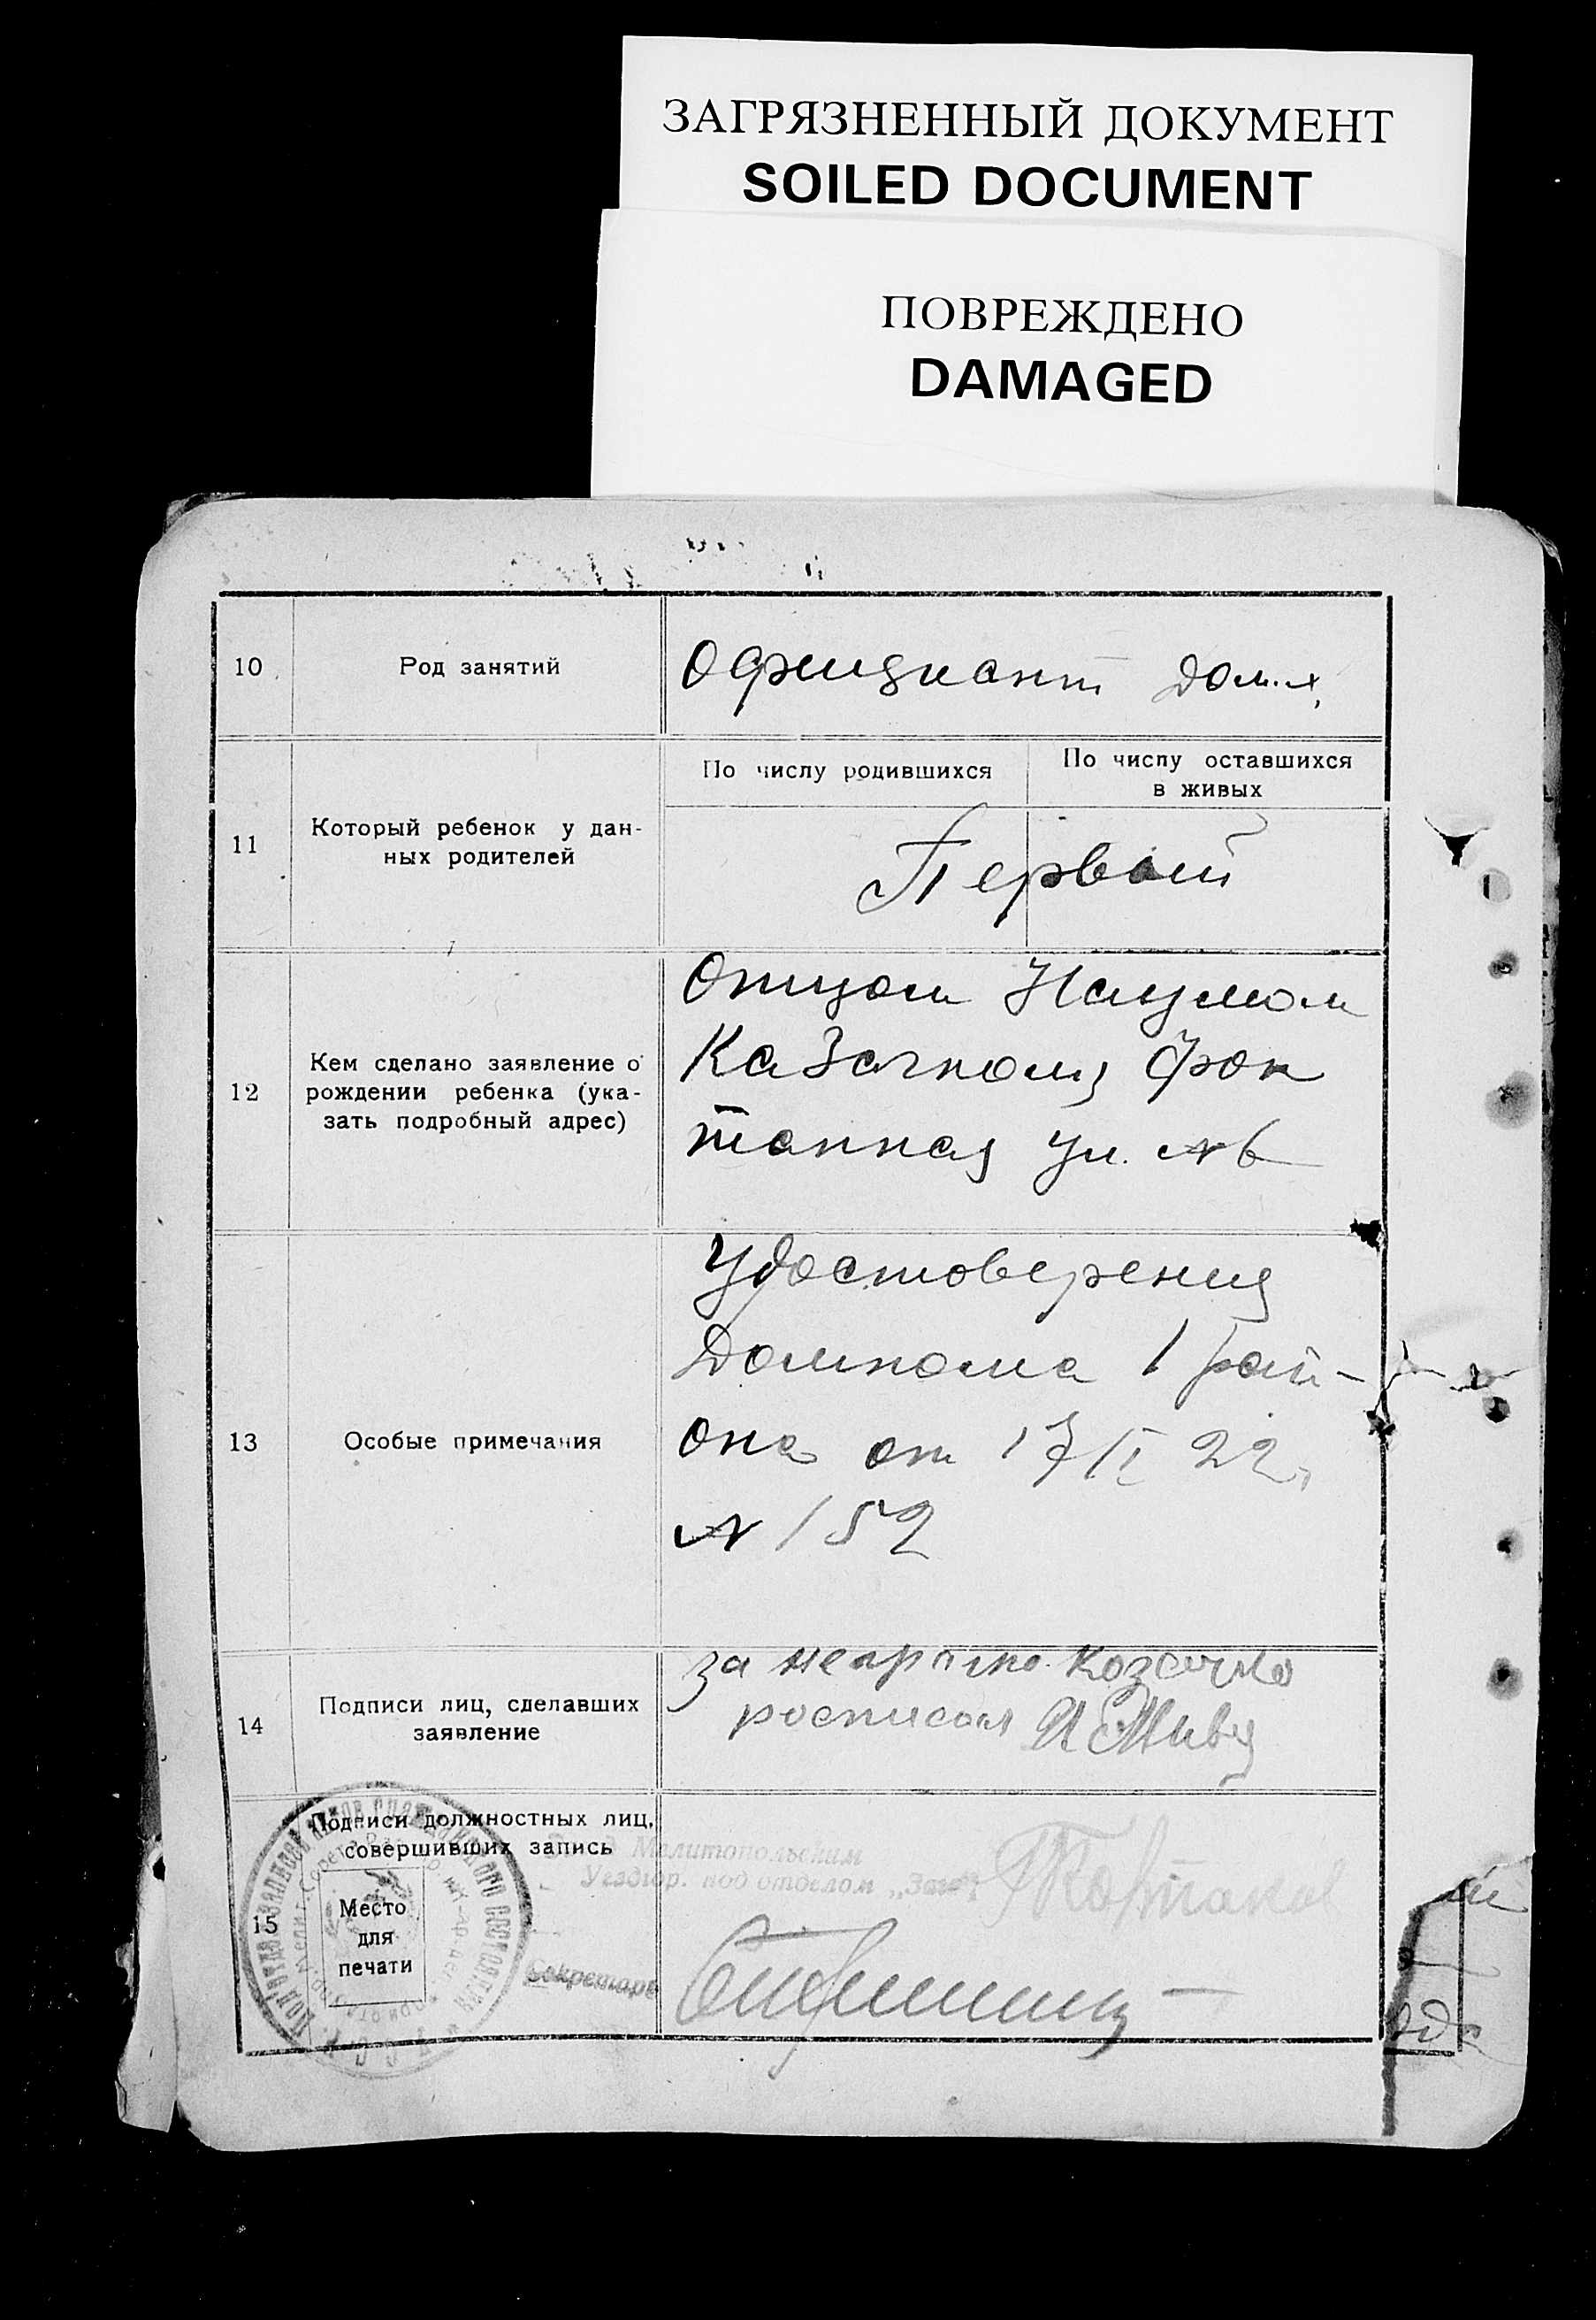 ЗАГРЯЗНЕННЫЙ ДОКУМЕНТ
SOILED DOCUMENT
ПОВРЕЖДЕНО
DAMAGED
10
Род занятий
Официант дом.х.
11
Который ребенок у дан-
ных родителей
По числу родившихся
По числу оставшихся
в живых
Первый
12
Кем сделано заявление о
рождении ребенка (ука-
зать подробный адрес)
Отцом Наумом
Казачком Фон
танная ул. № 6
13
Особые примечания
Удостоверения
Домкома 1 рай-
она от 17/I 22.
№ 152
14
Подписи лиц, сделавших
заявление
за неграмо.
росписал
15
Подписи должностных лиц,
совершивших запись
Место
для
печати
Мелитопольским
Уездгор. под отделом „Загс"
Секретарь